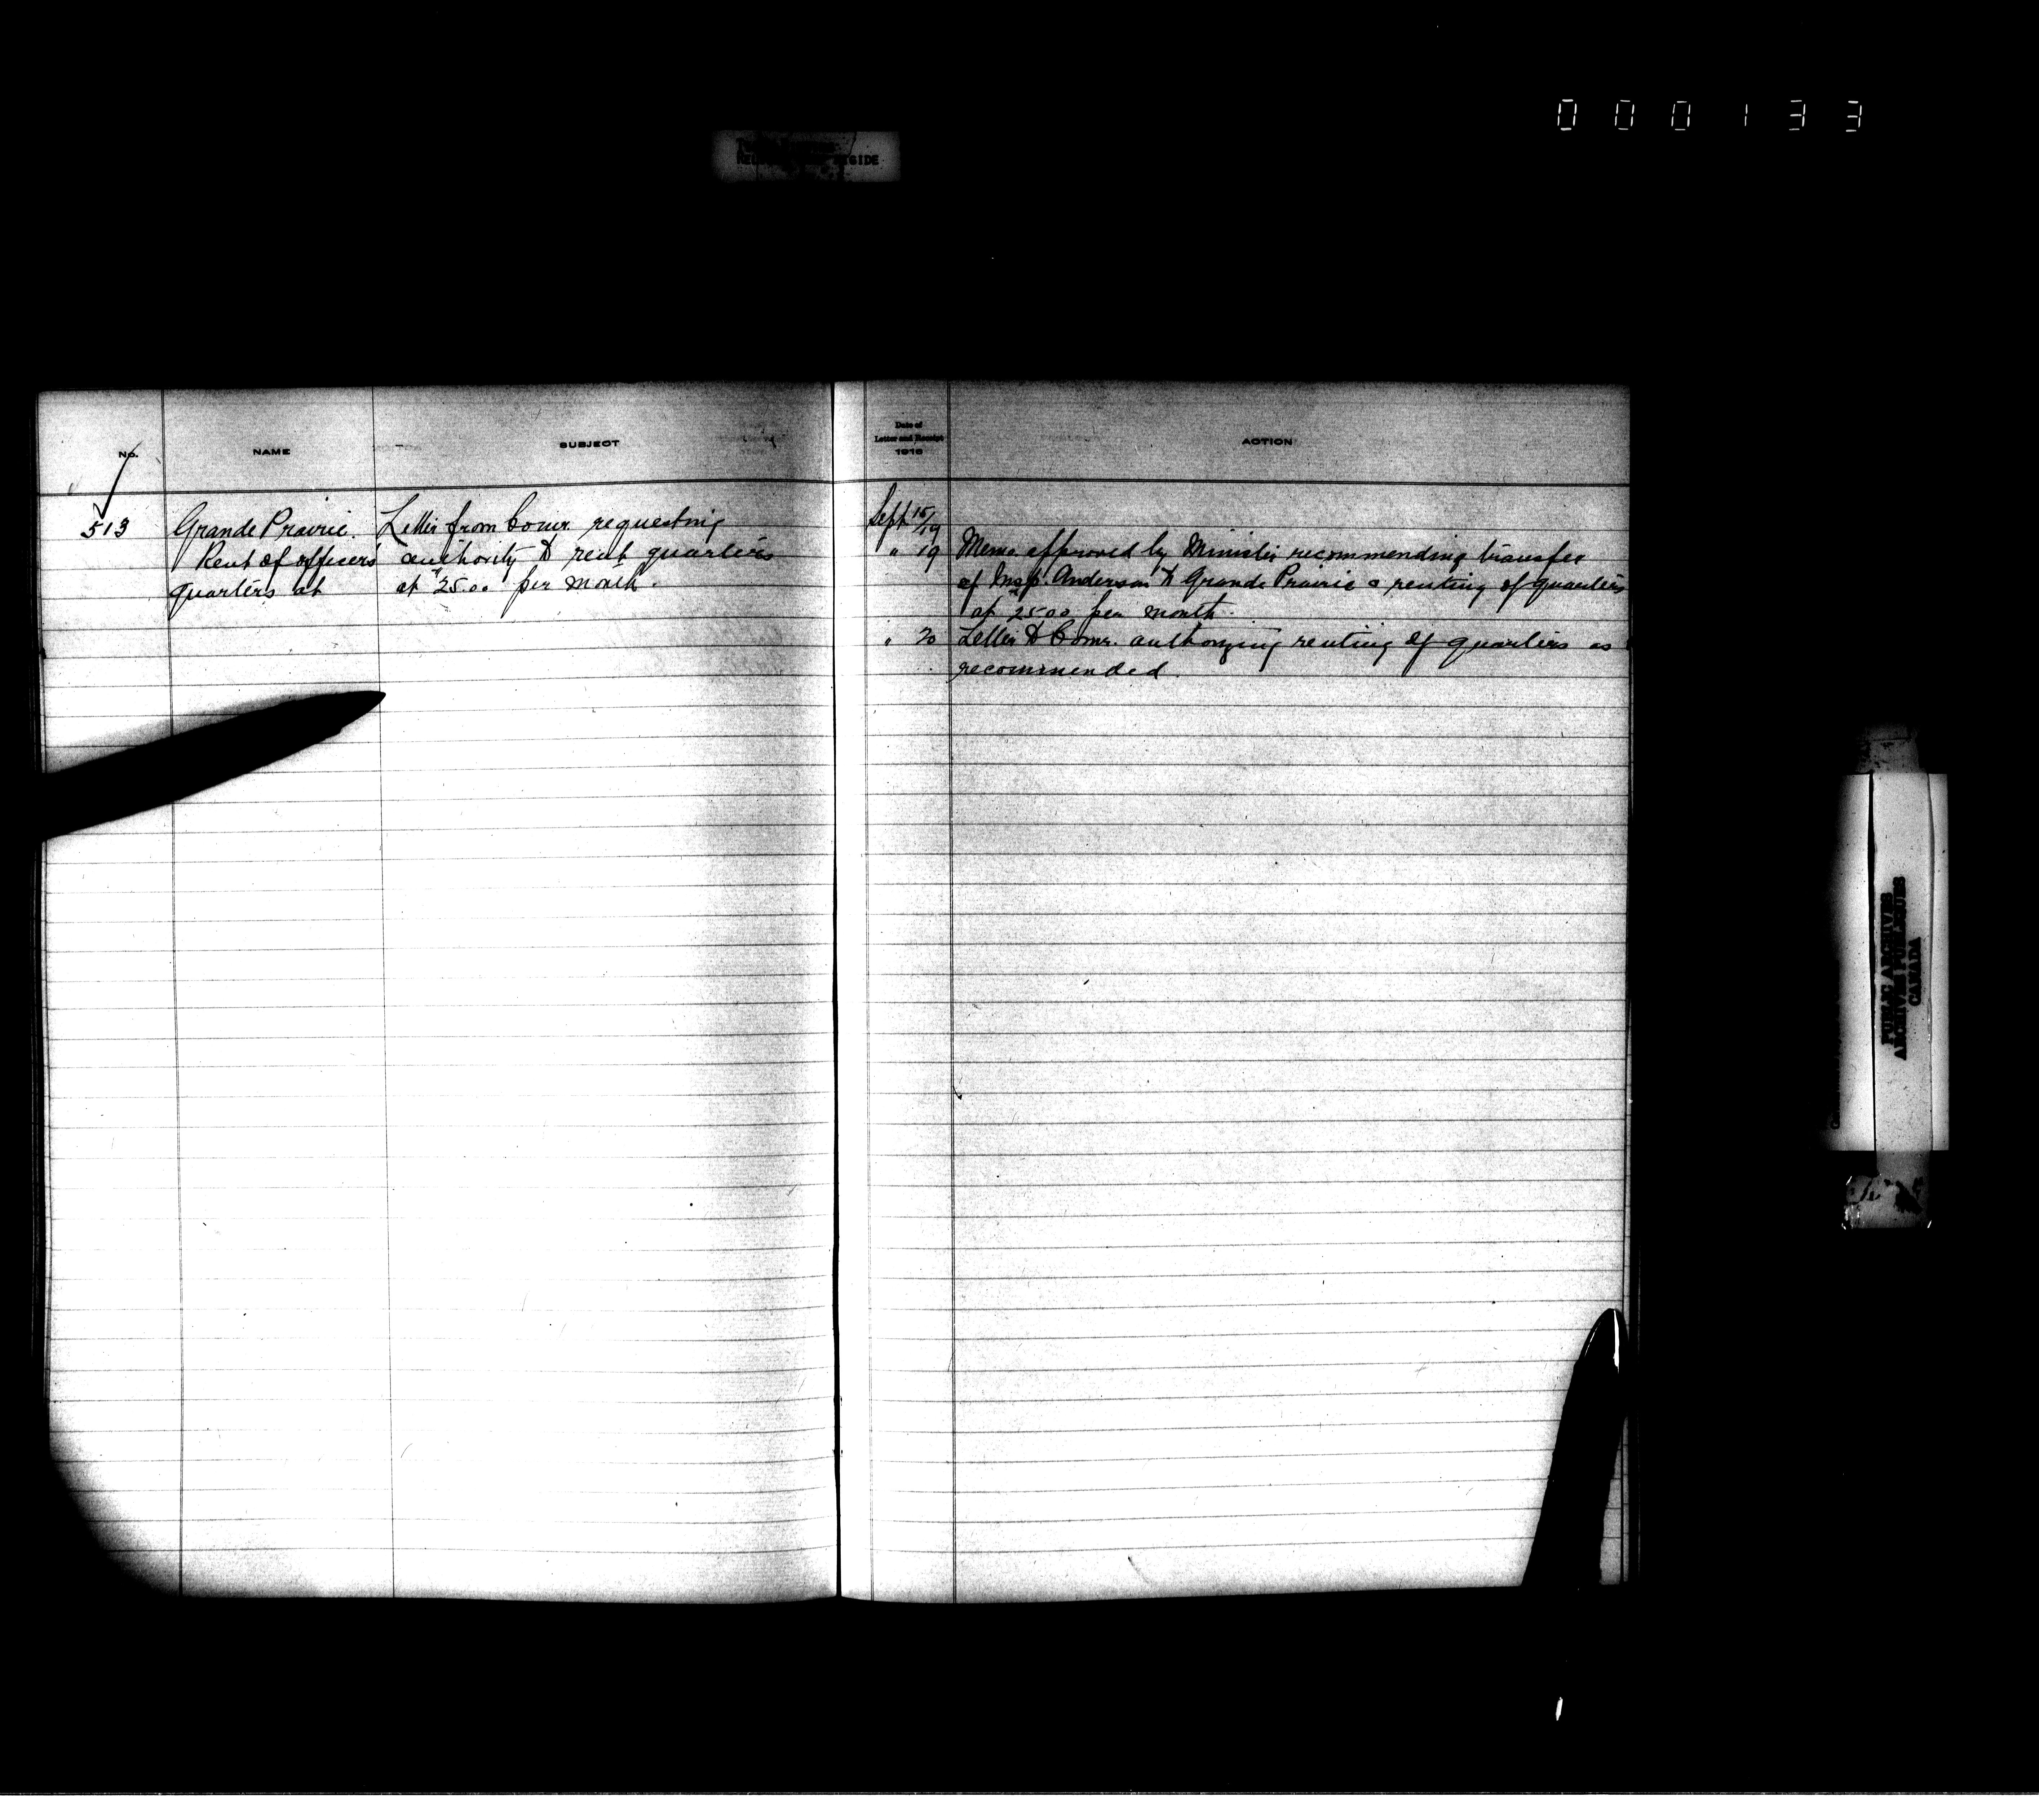 000133
No.
NAME
SUBJECT
513
Grande Prairie.
Rent of officers'
quarters at
Letter from Comr. requesting
authority to rent quarters
at $25.00 per month.
Date of
Letter and Receipt
1916
ACTION
Sept 15/19
" 19 Memo approved by Minister recommending transfer
of Insp. Anderson to Grande Prairie & renting of quarters
at $25.00 per month.
" 20 Letter to Comr. authorizing renting of quarters as
recommended.
PUBLIC ARCHIVES
ARCHIVES PUBLIQUES
CANADA